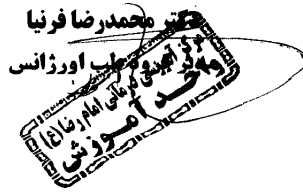 دکتر محمدرضا فرنیا
طب اورژانس
مرکز آموزشی درمانی امام رضا (ع)
واحد آموزش